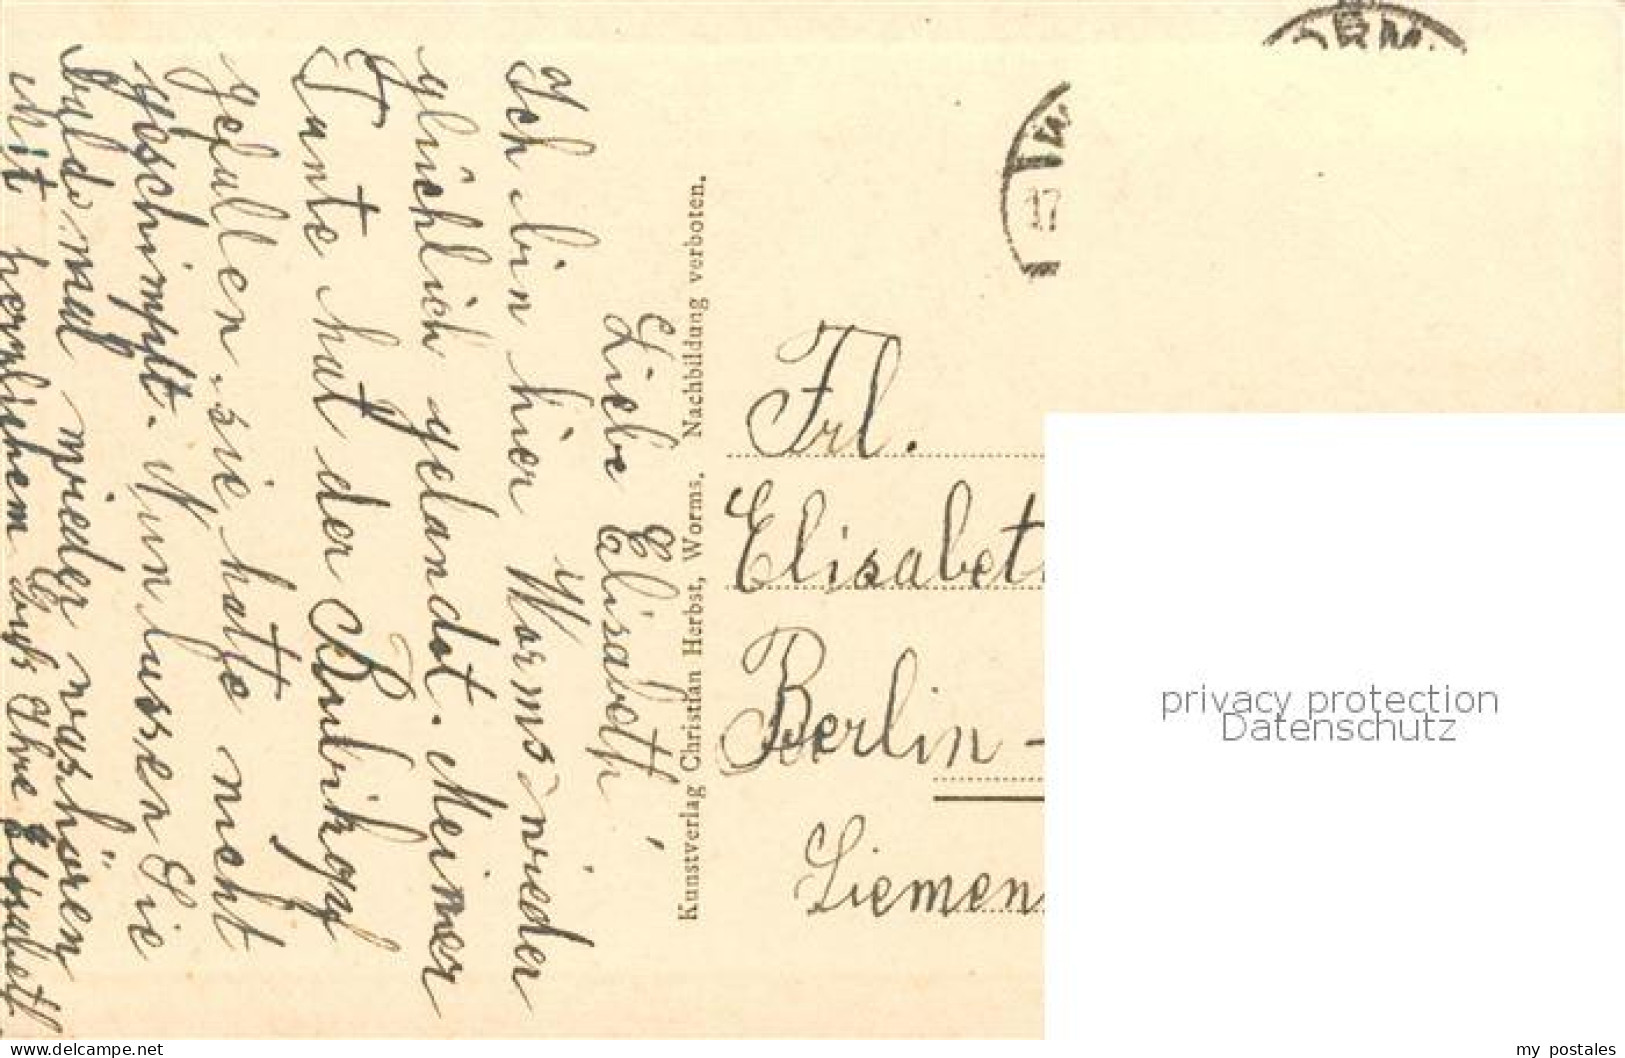 Liebe Elisabeth,
Ich bin hier in Worms wieder
glücklich gelandet. Meiner
Tante hat der Bubikopf
gefallen, sie hatte nicht
geschimpft. Nun lassen Sie
bald mal wieder was hören
Mit herzlichem Gruß Ihre Elisabeth.
Kunstverlag Christian Herbst, Worms. Nachbildung verboten.
ORM
W
17
Frl.
Elisabet
Berlin -
Siemens
privacy protection
Datenschutz
www.delcampe.net
my_postales